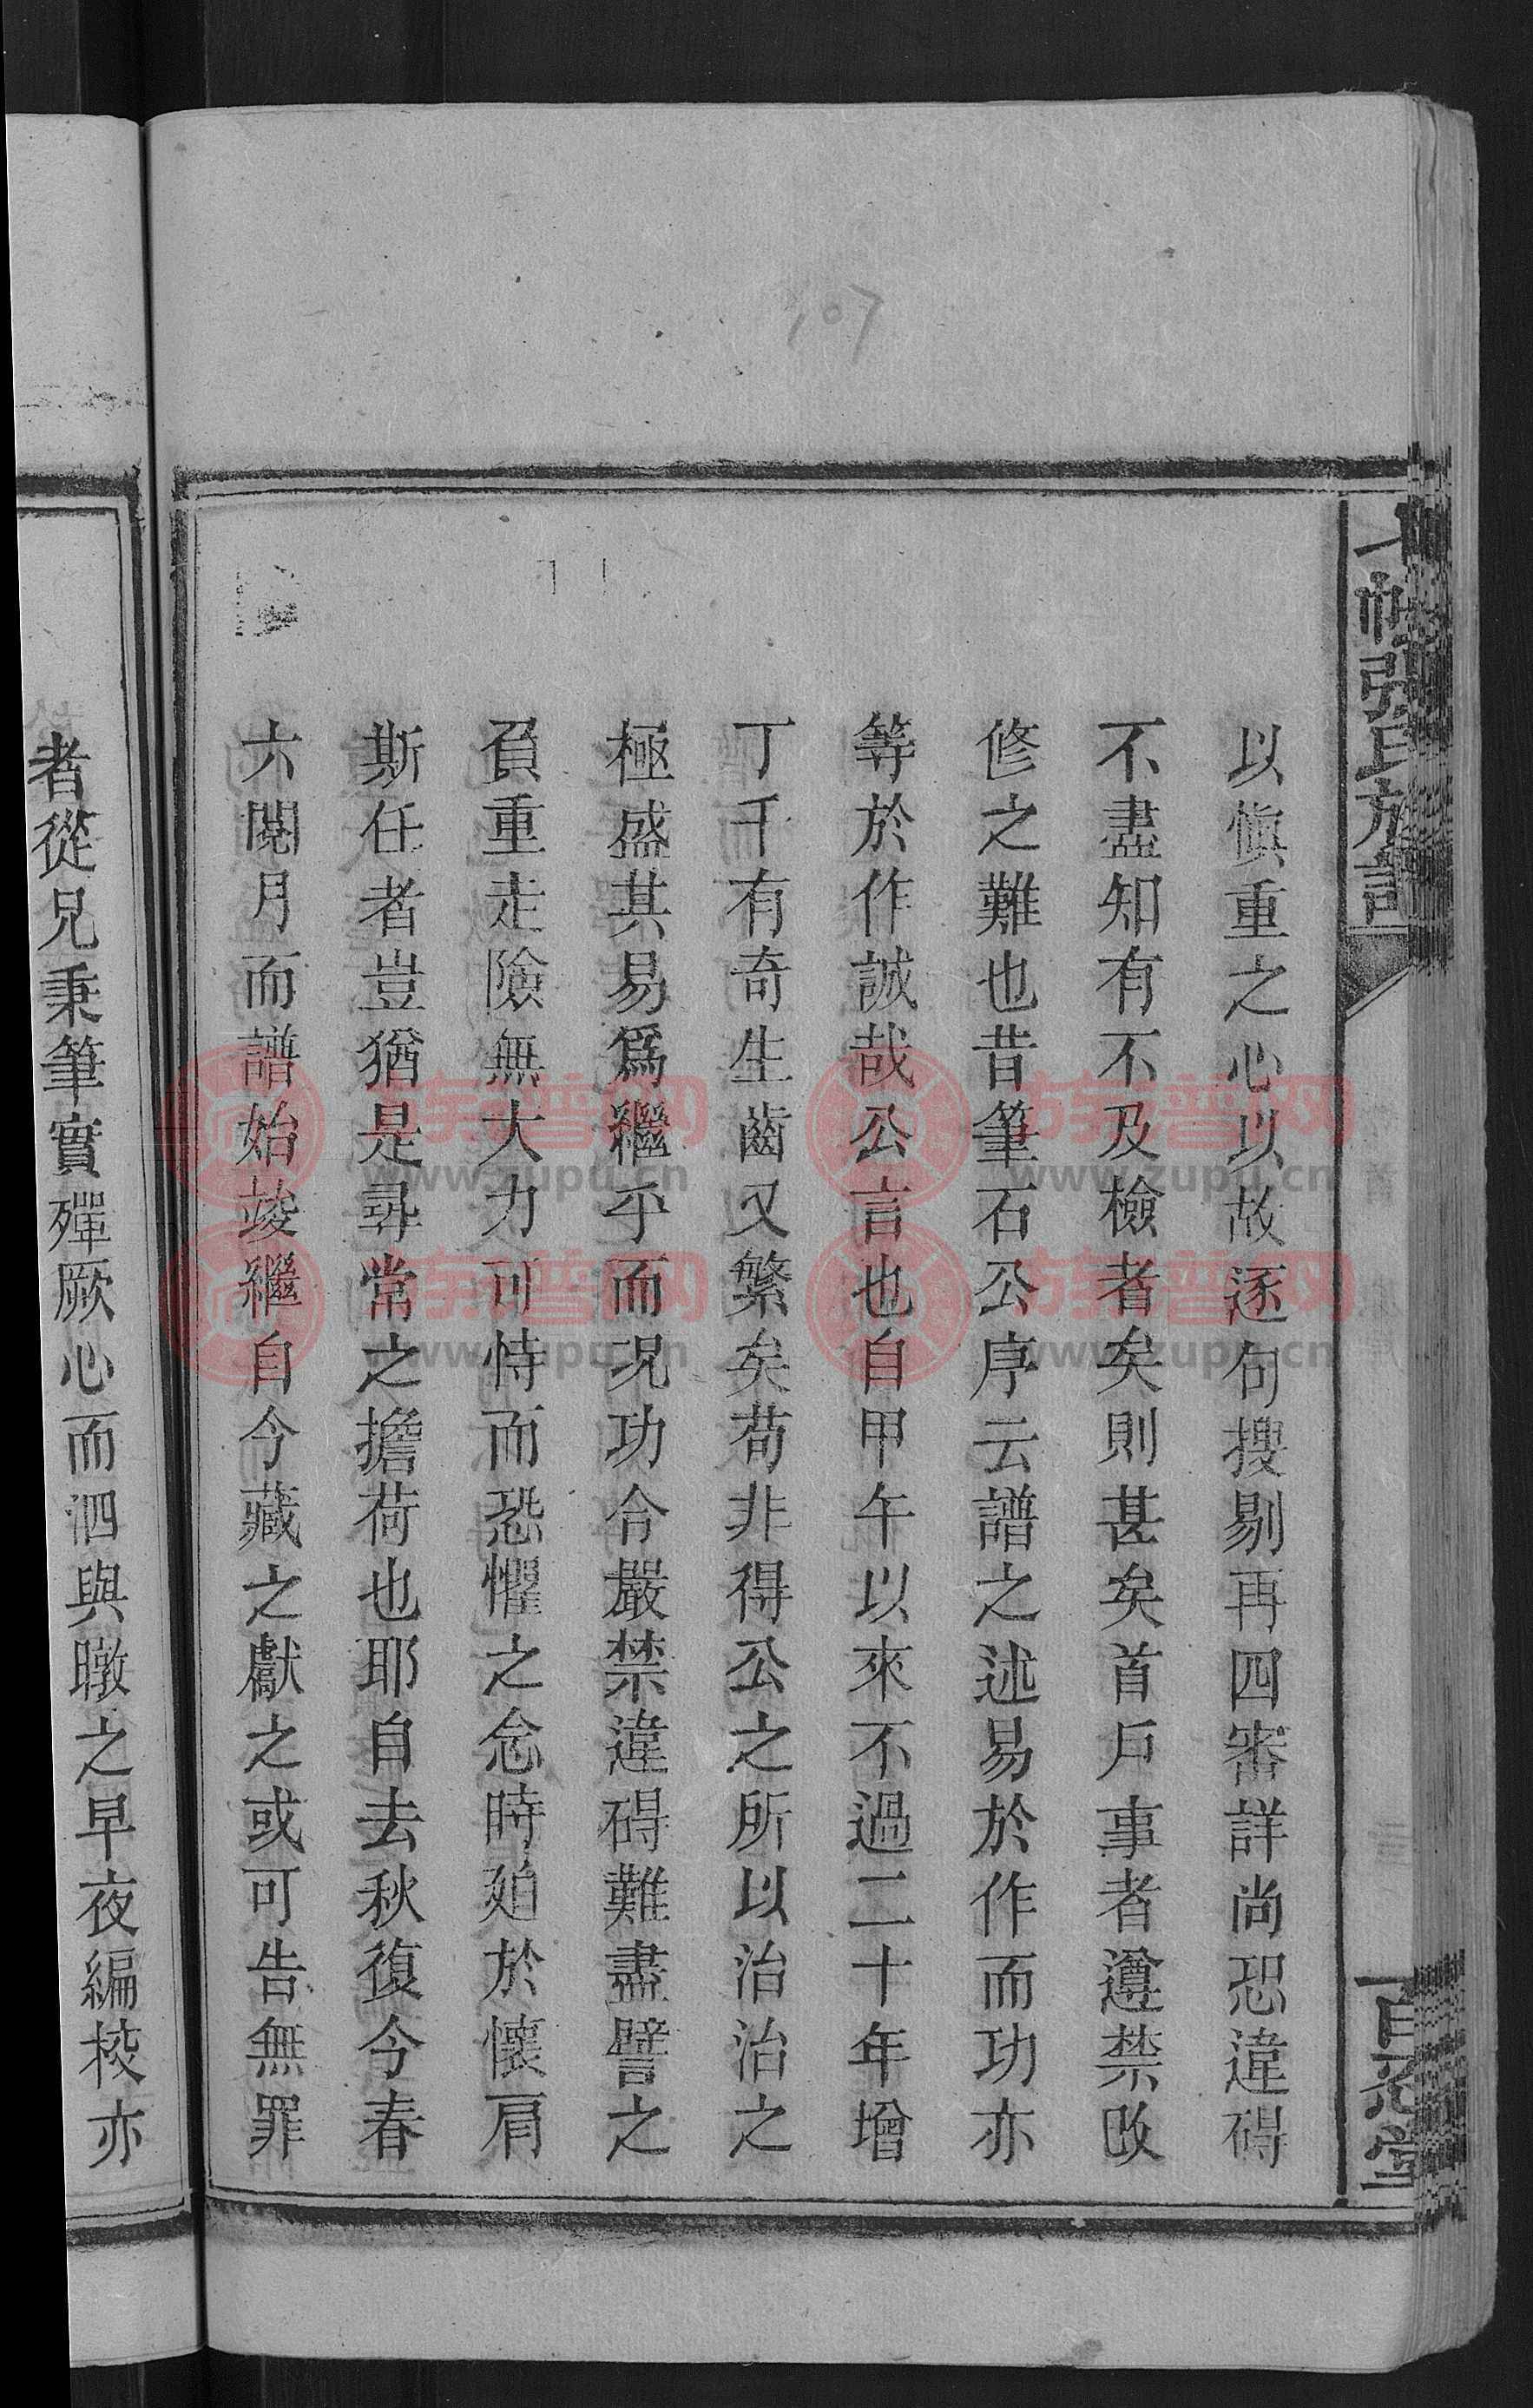 張氏方譜
以愼重之心以故逐句搜剔再四審詳尚恐違碍
不盡知有不及檢者矣則甚矣首戶事者遵禁改
修之難也昔筆石公序云譜之述易於作而功亦
等於作誠哉公言也自甲午以來不過二十年增
丁千有奇生齒又繁矣苟非得公之所以治治之
極盛其易爲繼乎而况功令嚴禁違碍難盡譬之
負重走險無大力可恃而恐懼之念時廹於懷肩
斯任者豈猶是尋常之擔荷也耶自去秋復今春
六閱月而譜始竣繼自今藏之獻之或可告無罪
者從兄秉筆實殫厥心而泗與暾之早夜編校亦
107
族普网
www.zupu.cn
族普网
www.zupu.cn
族普网
www.zupu.cn
族普网
www.zupu.cn